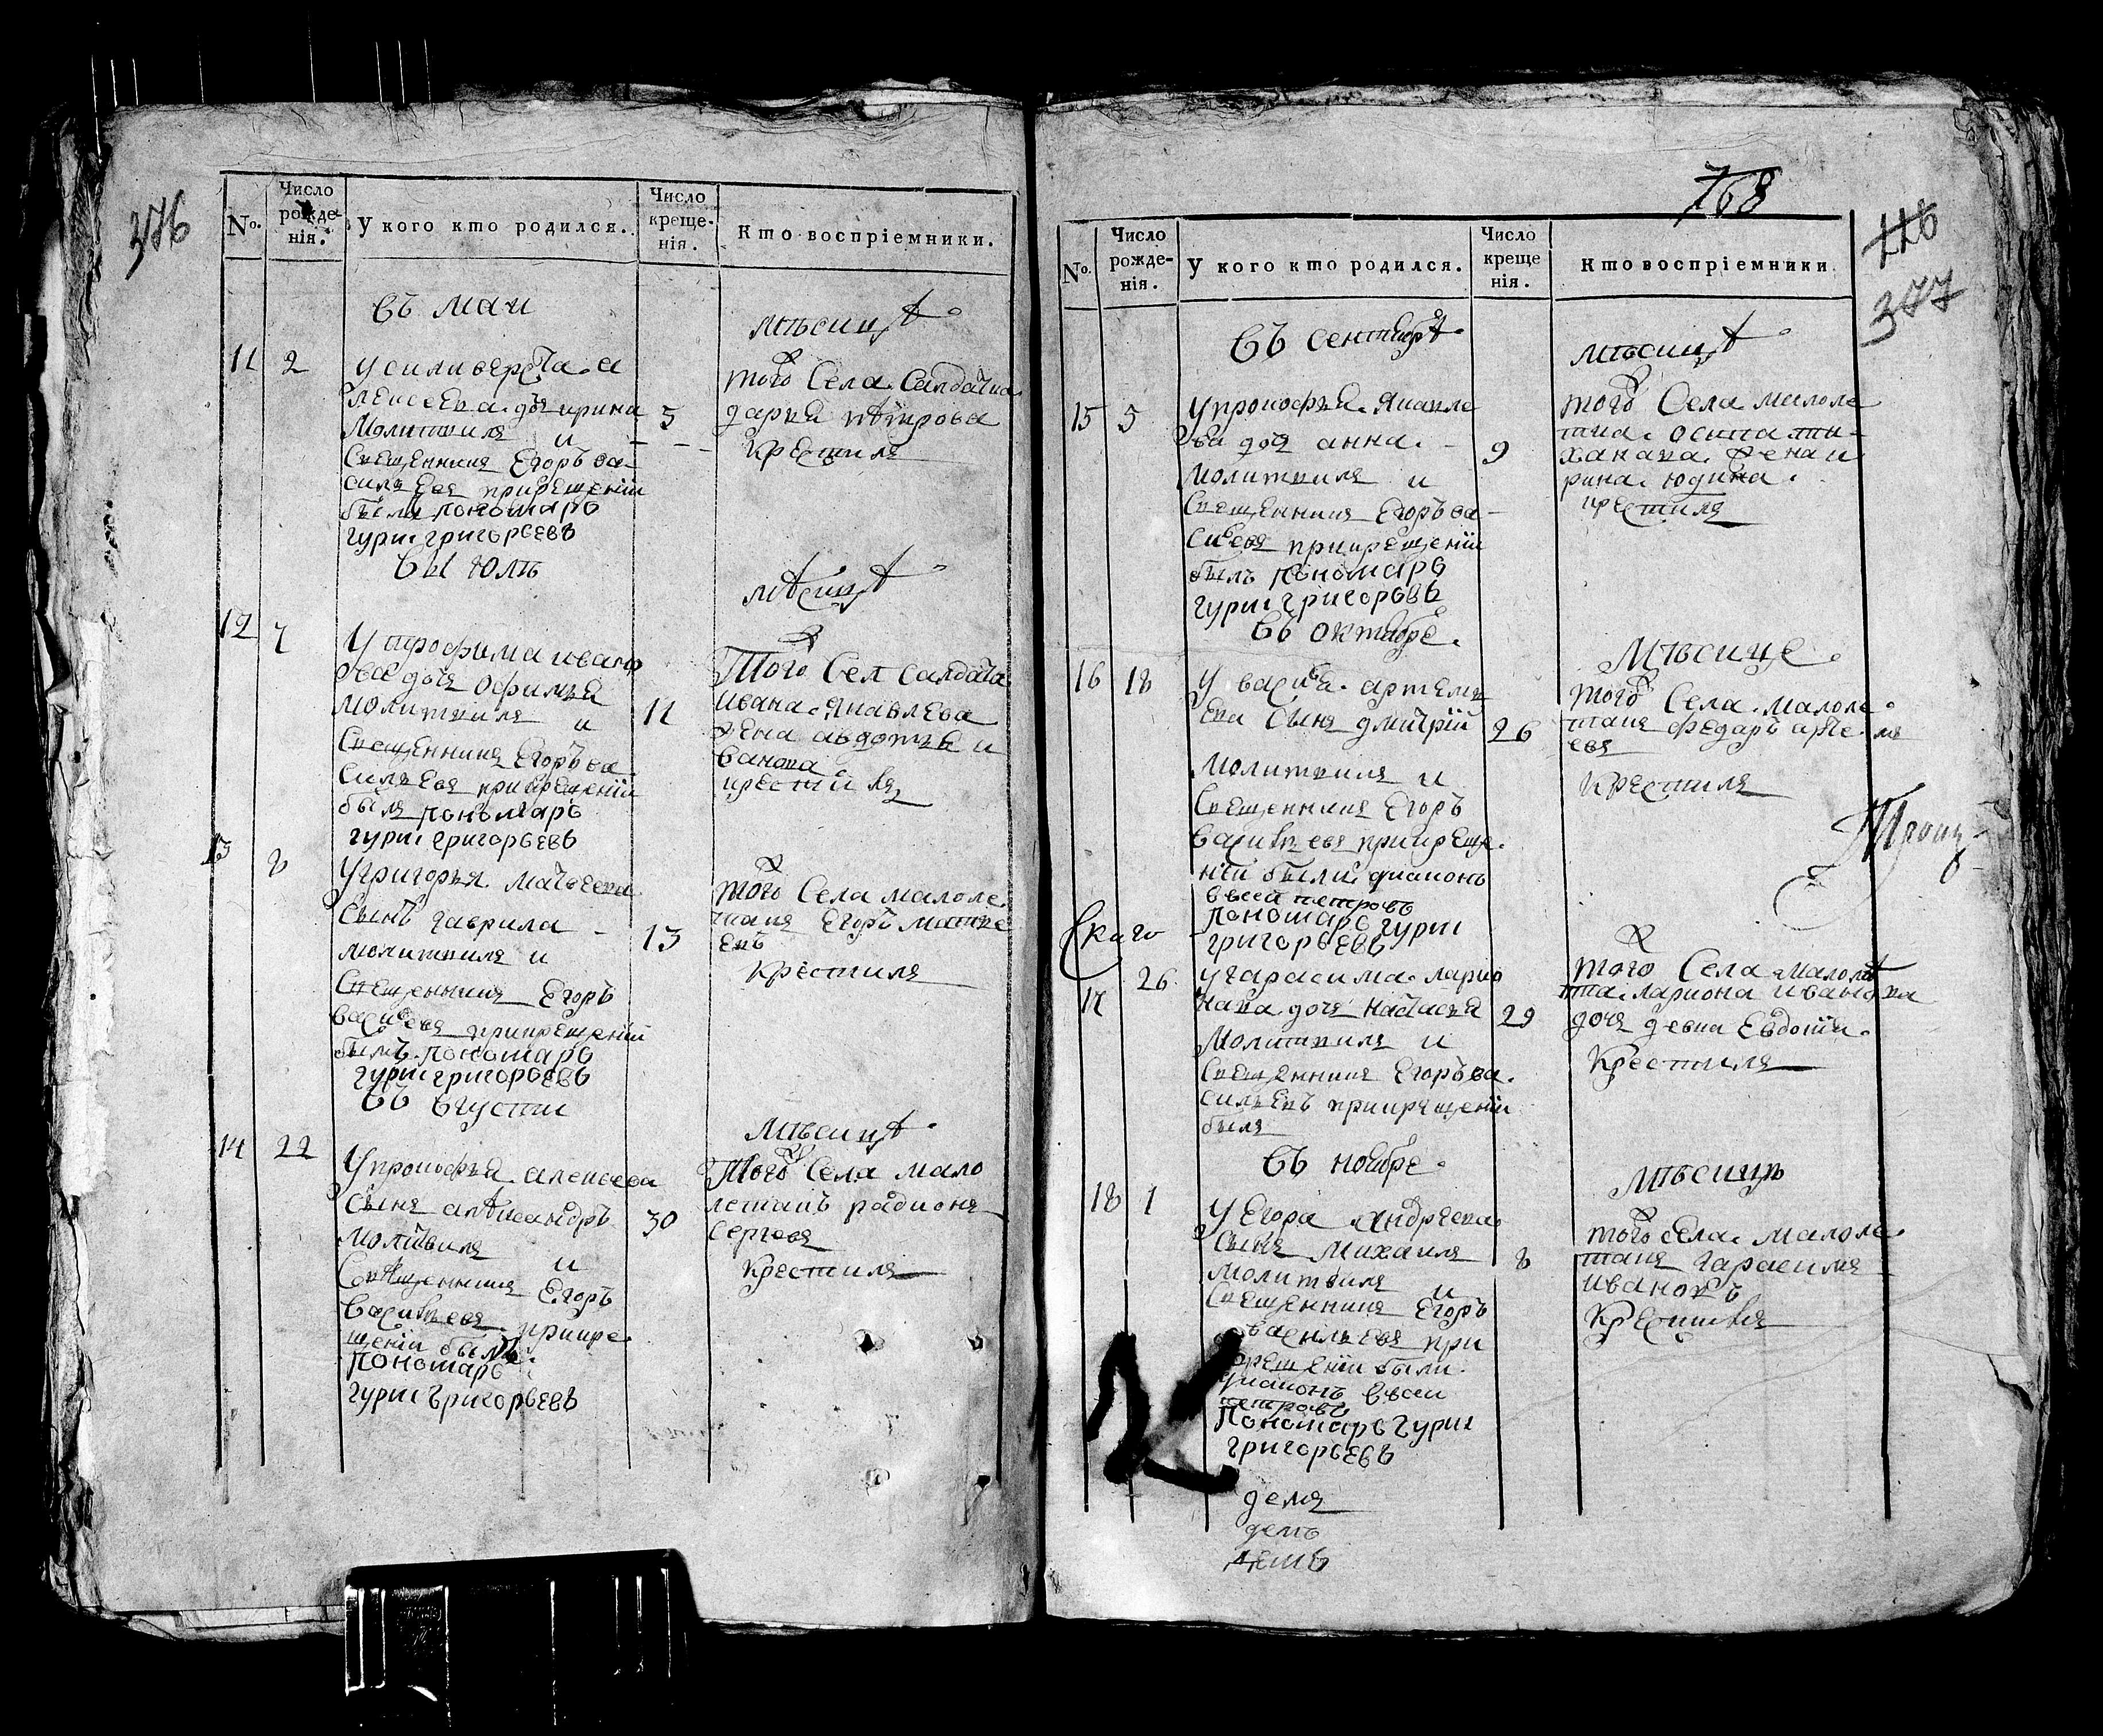 376
№.
Число рожде-нія.
У кого кто родился.
Число креще-нія.
Кто воспріемники.
въ маи
мѣсицѣ
11 2
у силиверста а
лексеева дочь ирина
5
молитвилъ и
священникъ Егоръ ва
сильевъ прикрещеніи
былъ пономарь
гурии григорьевъ
того села салдатка
дарья петрова
крестилъ
вы Юлѣ
мѣсицѣ
12 7
у трофима ивано
ва дочь офимья
11
молитвилъ и
священникъ Егоръ ва
сильевъ прикрещеніи
былъ пономарь
гурии григорьевъ
Того Сел салдата
ивана Яковлева
жена авдотья и
ванова
крестилъ
13 8
у григорья матвеева
сынъ гаврила
13
молитвилъ и
священникъ Егоръ
васильевъ прикрещеніи
былъ пономарь
гурии григорьевъ
того Села малоле
такъ Егоръ матве
евъ
крестилъ
въ вгусти
мѣсицѣ
14 22
У прокофья алексеева
сынъ алѣксандръ
30
молитвилъ и
Священникъ Егоръ
васильевъ прикре
щеніи былъ
пономарь
гурии григорьевъ
Того Села мало
летакъ радионъ
сергеевъ
крестилъ
768
116
377
№.
Число рожде-нія.
У кого кто родился.
Число креще нія.
Кто воспріемники.
въ сентябрѣ
мѣсицѣ
15 5
у прокофья Яковле
ва дочь анна
9
молитвилъ и
священникъ Егоръ ва
силевъ прикрещеніи
былъ пономарь
гурии григорьевъ
того Села малоле
тка осипа ти
ханава жена и
рина юдина
крестилъ
въ октябре
Мѣсице
16 18
у васиья артемь
ева сынъ дмитрій
26
молитвилъ и
священникъ Егоръ
васильевъ прикреще
ніи были диаконъ
петровъ
пономарь гурии
григорьевъ
того Села малоле
такъ федаръ арте мь
евъ
крестилъ
Троиц
скаго
17 26
у гарасима ларио
нава дочь настасья
29
молитвилъ и
священникъ Егоръ ва
сильевъ прикрещеніи
былъ
того Села малолѣ
тка лариона иванова
дочь девка Евдокiи
крестилъ
въ ноябре
мѣсицъ
18 1
у Егора андреева
сынъ михаилъ
8
молитвилъ и
священникъ Егоръ
васильевъ при
крещеніи были
диаконъ
петровъ
пономарь гурии
григорьевъ
того села малоле
такъ гарасимъ
ивановъ
крестилъ
демъ
демъ